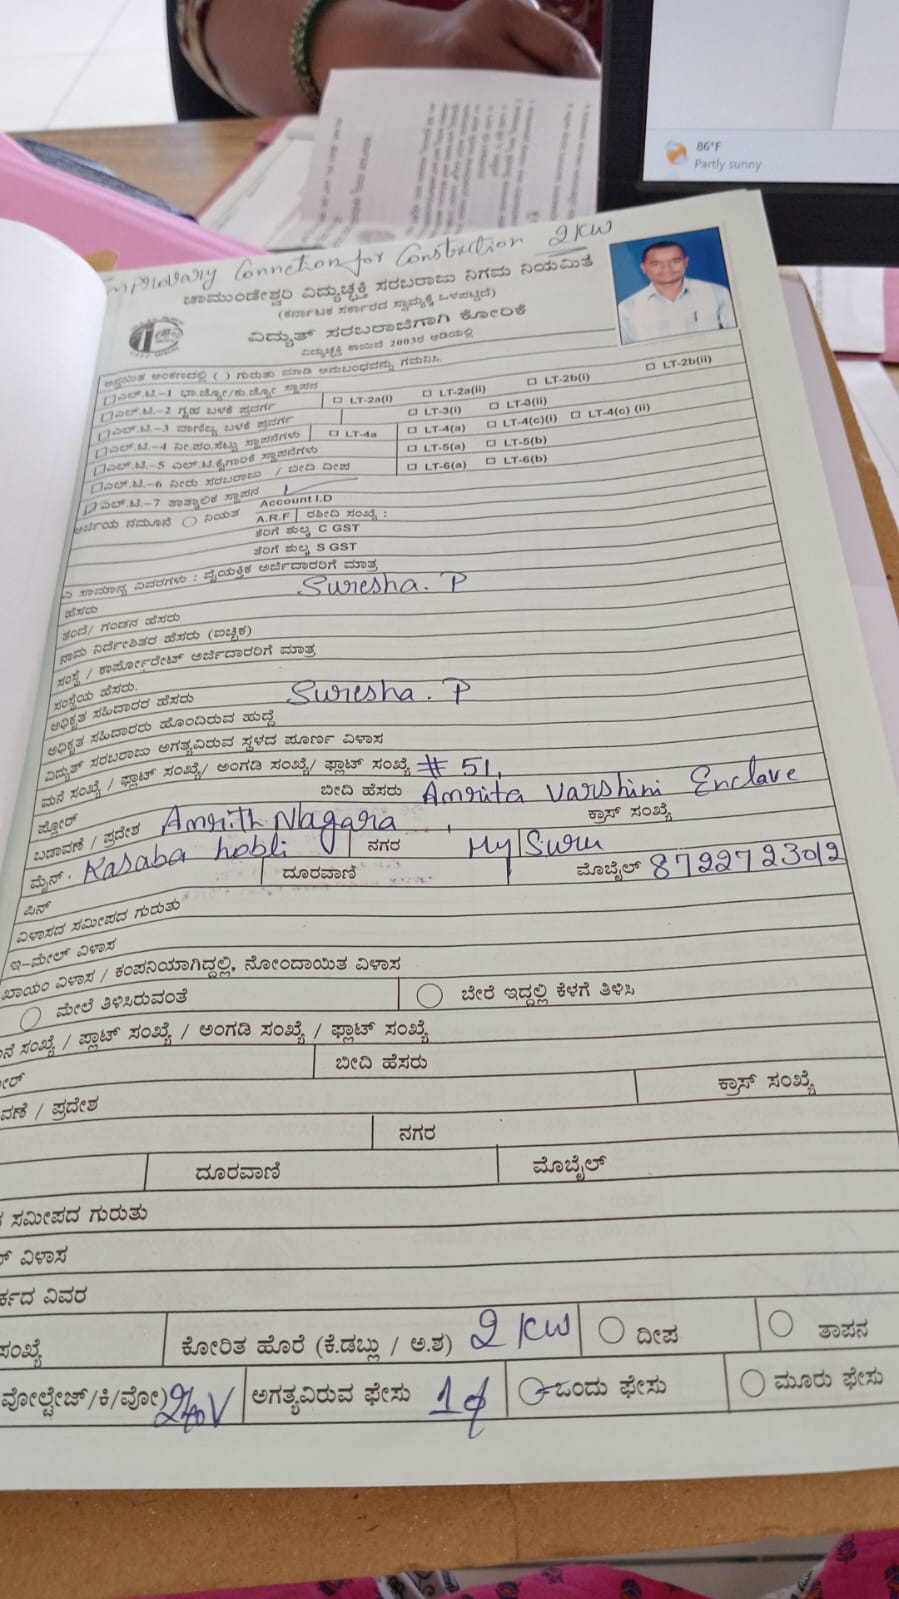 86°F
Partly sunny
Connction for Constrution 2 KW
ಚಾಮುಂಡೇಶ್ವರಿ ವಿದ್ಯುಚ್ಛಕ್ತಿ ಸರಬರಾಜು ನಿಗಮ ನಿಯಮಿತ
(ಕರ್ನಾಟಕ ಸರ್ಕಾರದ ಸ್ವಾಮ್ಯಕ್ಕೆ ಒಳಪಟ್ಟಿದೆ)
ವಿದ್ಯುತ್ ಸರಬರಾಜಿಗಾಗಿ ಕೋರಿಕೆ
ವಿದ್ಯುಚ್ಛಕ್ತಿ ಕಾಯಿದೆ 2003ರ ಅಡಿಯಲ್ಲಿ
ಅನ್ವಯಿತ ಅಂಕಣದಲ್ಲಿ ( ) ಗುರುತು ಮಾಡಿ ಅನುಬಂಧವನ್ನು ಗಮನಿಸಿ.
ಎಲ್.ಟಿ.-1 ಭಾ.ಜ್ಯೋ/ಕು.ಜ್ಯೋ ಸ್ಥಾಪನ LT-2a(i) LT-2a(ii) LT-2b(i) LT-2b(ii)
ಎಲ್.ಟಿ.-2 ಗೃಹ ಬಳಕೆ ಪ್ರವರ್ಗ LT-3(i) LT-3(ii)
ಎಲ್.ಟಿ.-3 ವಾಣಿಜ್ಯ ಬಳಕೆ ಪ್ರವರ್ಗ LT-4a LT-4(a) LT-4(c)(i) LT-4(c) (ii)
ಎಲ್.ಟಿ.-4 ನೀ.ಪಂ.ಸೆಟ್ಟು ಸ್ಥಾಪನೆಗಳು LT-5(a) LT-5(b)
ಎಲ್.ಟಿ.-5 ಎಲ್.ಟಿ.ಕೈಗಾರಿಕೆ ಸ್ಥಾಪನೆಗಳು LT-6(a) LT-6(b)
ಎಲ್.ಟಿ.-6 ನೀರು ಸರಬರಾಜು / ಬೀದಿ ದೀಪ
ಎಲ್.ಟಿ.-7 ತಾತ್ಕಾಲಿಕ ಸ್ಥಾಪನ
ಅರ್ಜಿಯ ನಮೂನೆ ನಿಯತ Account I.D
A.R.F ರಶೀದಿ ಸಂಖ್ಯೆ :
ತೆರಿಗೆ ಶುಲ್ಕ C GST
ತೆರಿಗೆ ಶುಲ್ಕ S GST
ಸಾಮಾನ್ಯ ವಿವರಗಳು : ವೈಯಕ್ತಿಕ ಅರ್ಜಿದಾರರಿಗೆ ಮಾತ್ರ
ಹೆಸರು Suresha. P
ತಂದೆ/ ಗಂಡನ ಹೆಸರು
ನಾಮ ನಿರ್ದೇಶಿತರ ಹೆಸರು (ಐಚ್ಛಿಕ)
ಸಂಸ್ಥೆ / ಕಾರ್ಪೋರೇಟ್ ಅರ್ಜಿದಾರರಿಗೆ ಮಾತ್ರ
ಸಂಸ್ಥೆಯ ಹೆಸರು.
ಅಧಿಕೃತ ಸಹಿದಾರರ ಹೆಸರು Suresha. P
ಅಧಿಕೃತ ಸಹಿದಾರರು ಹೊಂದಿರುವ ಹುದ್ದೆ
ವಿದ್ಯುತ್ ಸರಬರಾಜು ಅಗತ್ಯವಿರುವ ಸ್ಥಳದ ಪೂರ್ಣ ವಿಳಾಸ
ಮನೆ ಸಂಖ್ಯೆ / ಫ್ಲಾಟ್ ಸಂಖ್ಯೆ/ ಅಂಗಡಿ ಸಂಖ್ಯೆ/ ಪ್ಲಾಟ್ ಸಂಖ್ಯೆ # 51,
ಫ್ಲೋರ್ ಬೀದಿ ಹೆಸರು Amrita Varshini Enclave
ಬಡಾವಣೆ / ಪ್ರದೇಶ Amrith Nagara , ಕ್ರಾಸ್ ಸಂಖ್ಯೆ
ಮೈನ್. Kasaba hobli ನಗರ Mysuru
ಪಿನ್ ದೂರವಾಣಿ ಮೊಬೈಲ್ 8722723012
ವಿಳಾಸದ ಸಮೀಪದ ಗುರುತು
ಇ-ಮೇಲ್ ವಿಳಾಸ
ಖಾಯಂ ವಿಳಾಸ / ಕಂಪನಿಯಾಗಿದ್ದಲ್ಲಿ, ನೋಂದಾಯಿತ ವಿಳಾಸ
ಮೇಲೆ ತಿಳಿಸಿರುವಂತೆ ಬೇರೆ ಇದ್ದಲ್ಲಿ ಕೆಳಗೆ ತಿಳಿಸಿ
ನೆ ಸಂಖ್ಯೆ / ಪ್ಲಾಟ್ ಸಂಖ್ಯೆ / ಅಂಗಡಿ ಸಂಖ್ಯೆ / ಫ್ಲಾಟ್ ಸಂಖ್ಯೆ
ೋರ್ ಬೀದಿ ಹೆಸರು
ವಣೆ / ಪ್ರದೇಶ ಕ್ರಾಸ್ ಸಂಖ್ಯೆ
ನಗರ
ದೂರವಾಣಿ ಮೊಬೈಲ್
ಸಮೀಪದ ಗುರುತು
ಲ್ ವಿಳಾಸ
ರ್ಕದ ವಿವರ
ಸಂಖ್ಯೆ ಕೋರಿತ ಹೊರೆ (ಕೆ.ಡಬ್ಲು / ಅ.ಶ) 2 KW ದೀಪ ತಾಪನ
ವೋಲ್ಟೇಜ್/ಕಿ/ವೋ) ಅಗತ್ಯವಿರುವ ಫೇಸು 1ϕ ಒಂದು ಫೇಸು ಮೂರು ಫೇಸು